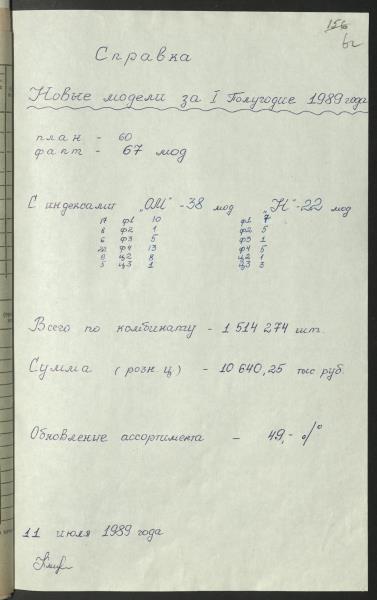 156
62
Справка
Новые модели за I Полугодие 1989 года
план - 60
факт - 67 мод
С индексами "ОМ" - 38 мод "Н" - 22 мод
17 ф1 10 ф1 7
8 ф2 1 ф2 5
6 ф3 5 ф3 1
22 ф4 13 ф4 5
9 ц2 8 ц2 1
5 ц3 1 ц3 3
Всего по комбинату - 1 514 274 шт.
Сумма (розн. ц) - 10 640,25 тыс руб.
Обновление ассортимента - 49,- %
11 июля 1989 года